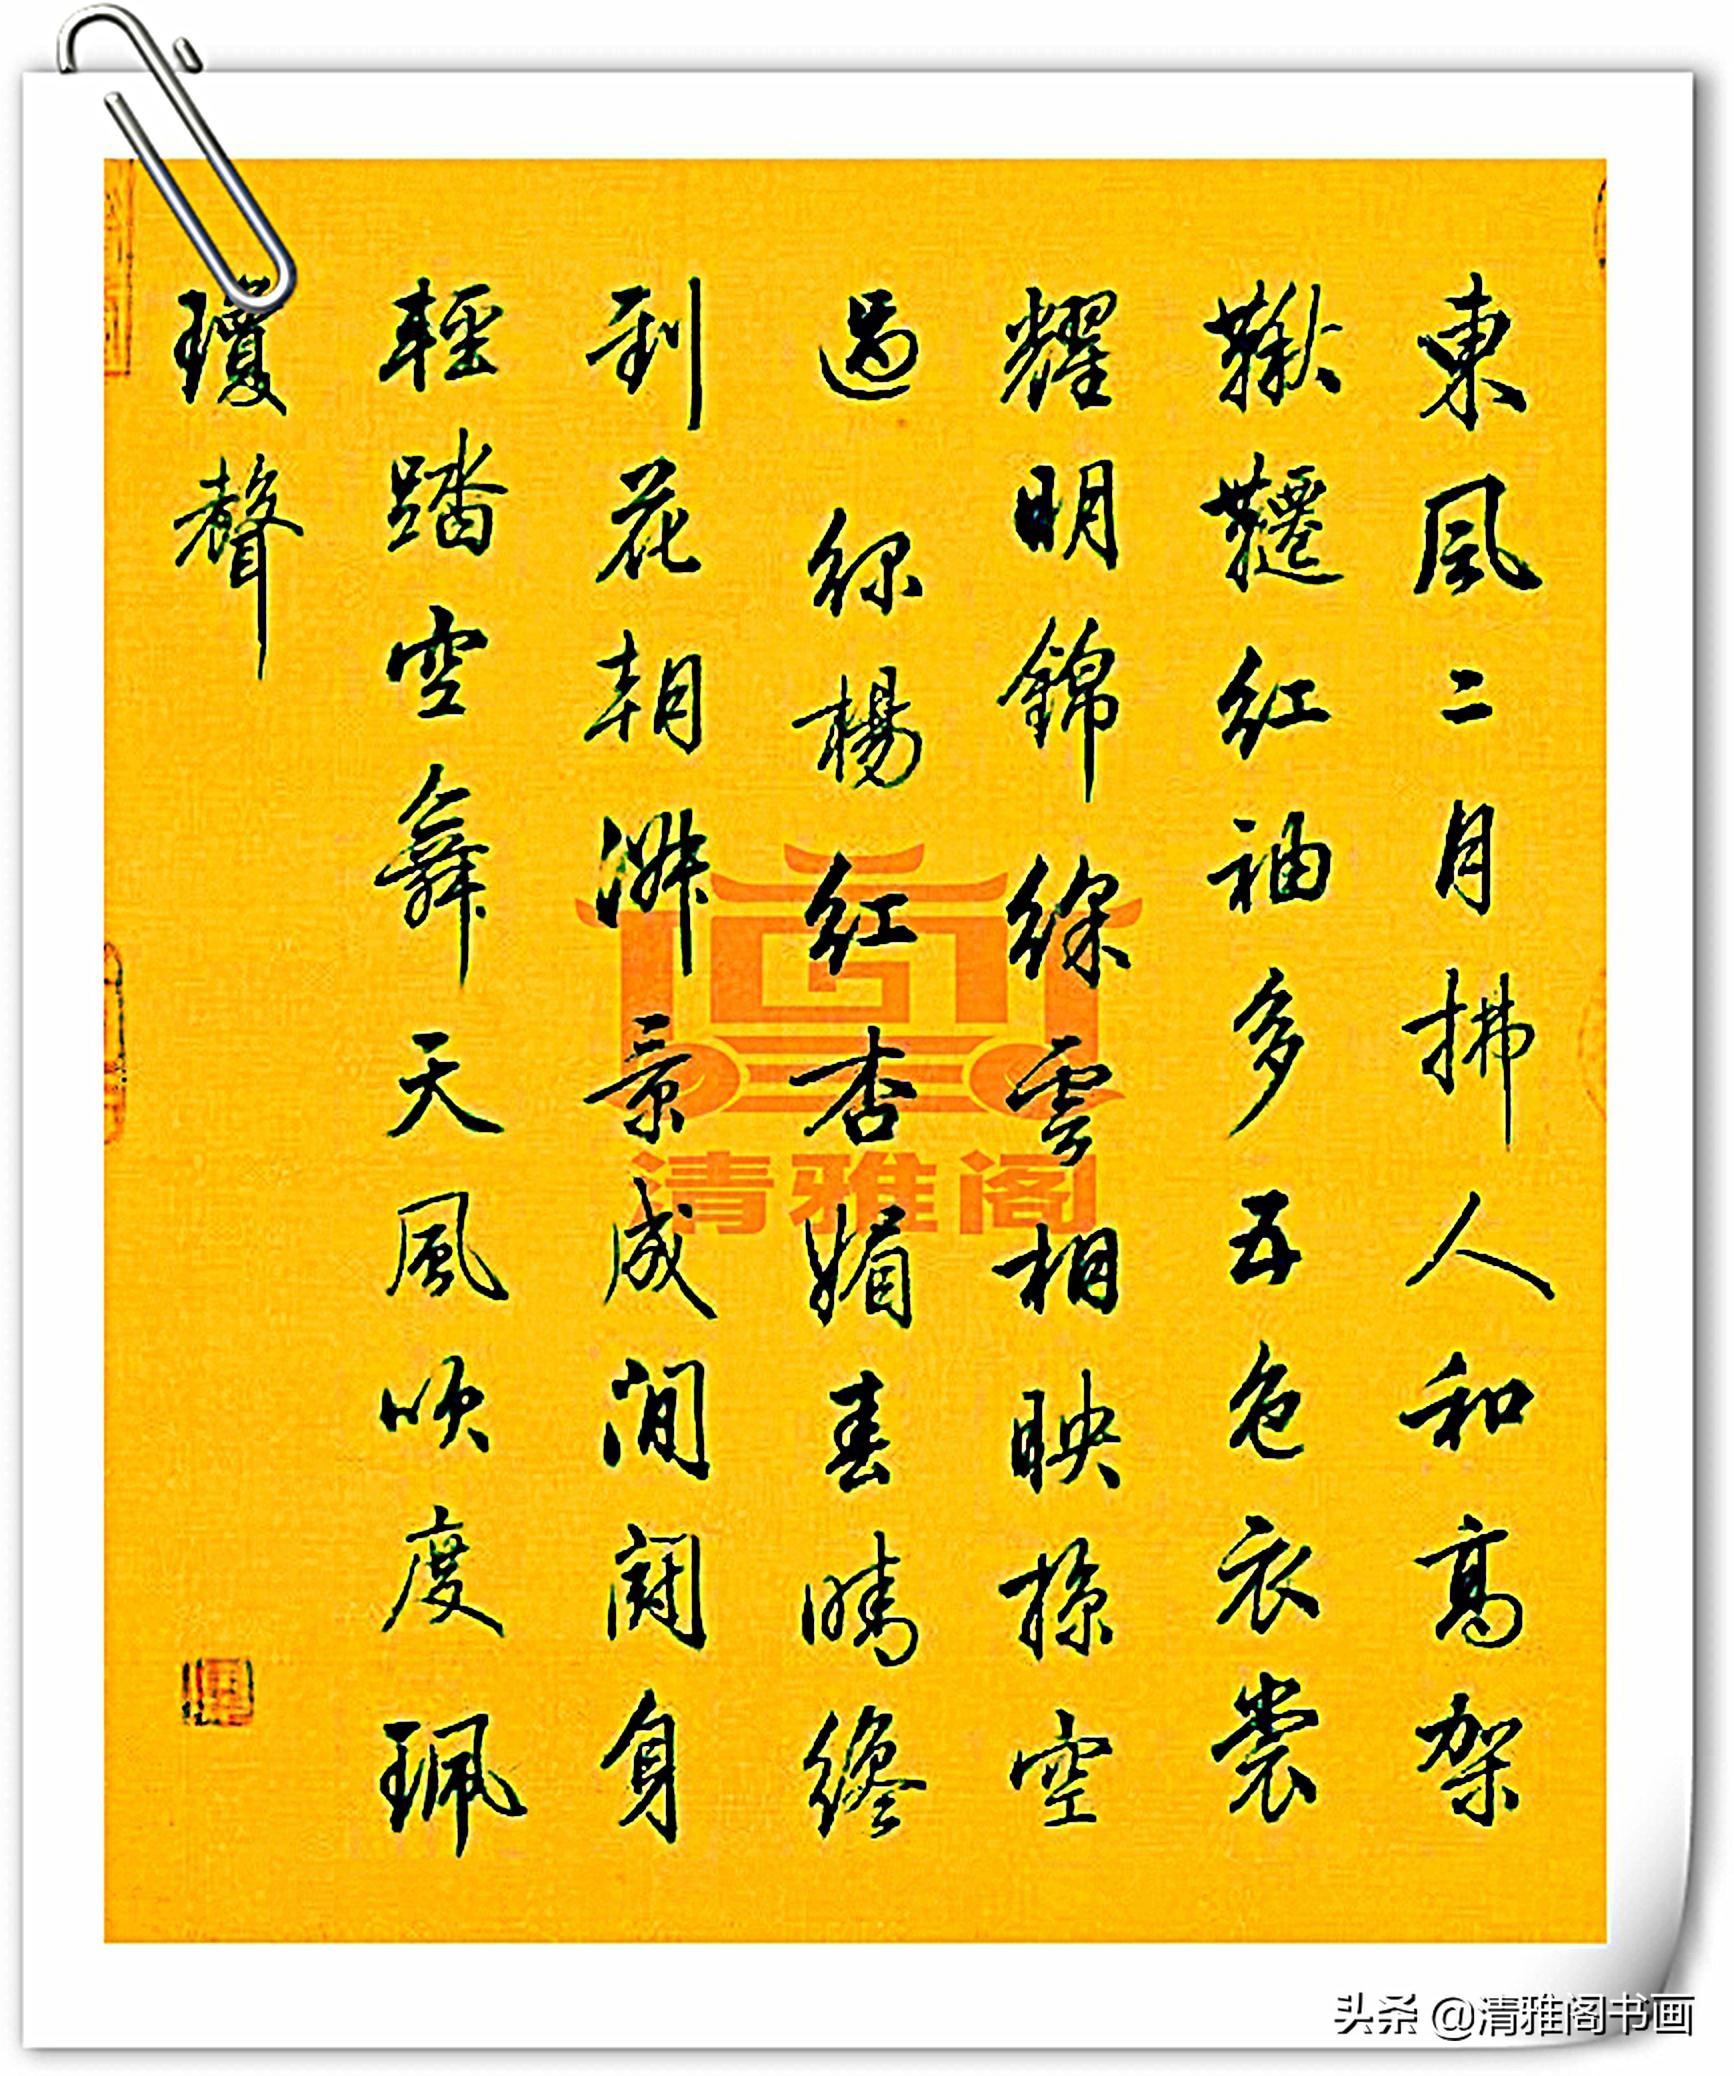 東風二月拂人和高架
鞦韆紅袖多五色衣裳
耀明錦綵雲相映掠空
過綠楊紅杏媚春晴纔
到花朝淑景成閒闘身
輕踏空舞天風吹度珮
瓊聲
清雅阁
头条 @清雅阁书画